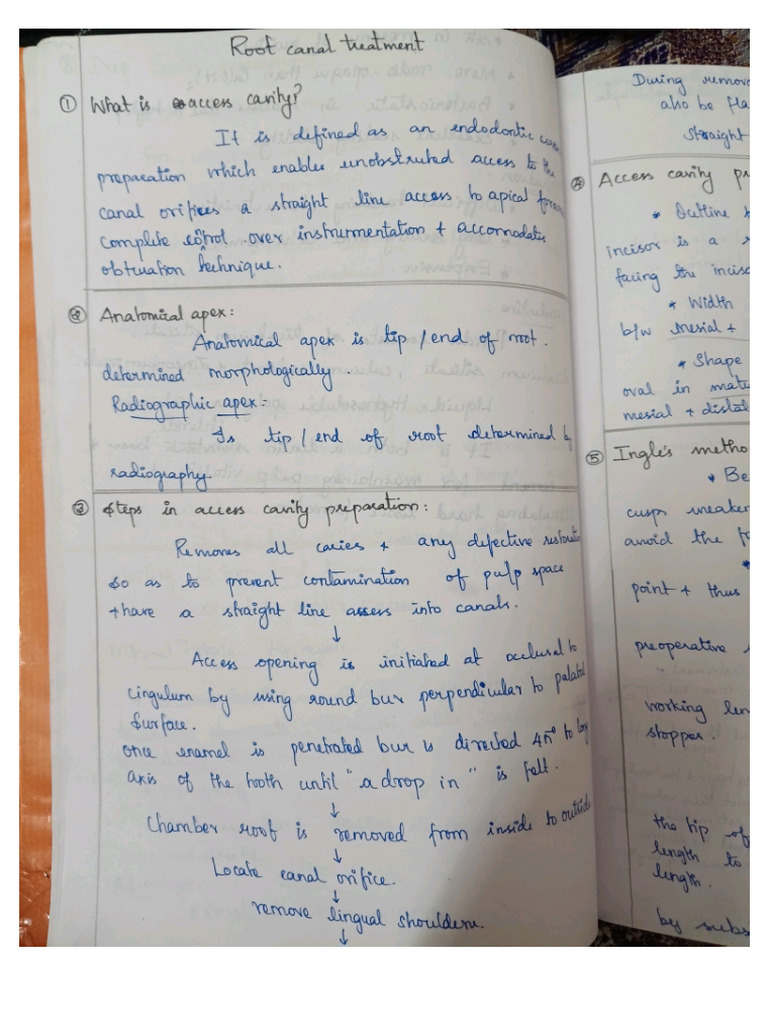 Root canal treatment
① What is access cavity?
It is defined as an endodontic
preparation which enables unobstruted access to the
canal orifices a straight line access to apical foram
complete control over instrumentation + accomodates
obtuation technique.
② Anatomical apex:
Anatomical apex is tip / end of root.
determined morphologically.
Radiographic apex:
Is tip / end of root determined by
radiography.
③ Steps in access cavity preparation:
Removes all caries + any defective restoration
so as to prevent contamination of pulp space
+ have a straight line assess into canals.
↓
Access opening is initiated at occlusal to
cingulum by using round bur perpendicular to palatal
surface.
once enamel is penetrated bur is directed 45° to long
axis of the tooth until "a drop in" is felt.
↓
Chamber roof is removed from inside to outside
↓
Locate canal orifice.
↓
remove lingual shoulder.
↓
During remova
also be fla
straight
④ Access cavity pr
* Outline
incisor is a
facing the inciso
* Width
b/w mesial +
* Shape
oval in matu
mesial + distal
⑤ Ingle's metho
* Be
cusps weaken
avoid the
*
point + thus
preoperative
working len
stopper.
the tip of
length to
length.
by subs